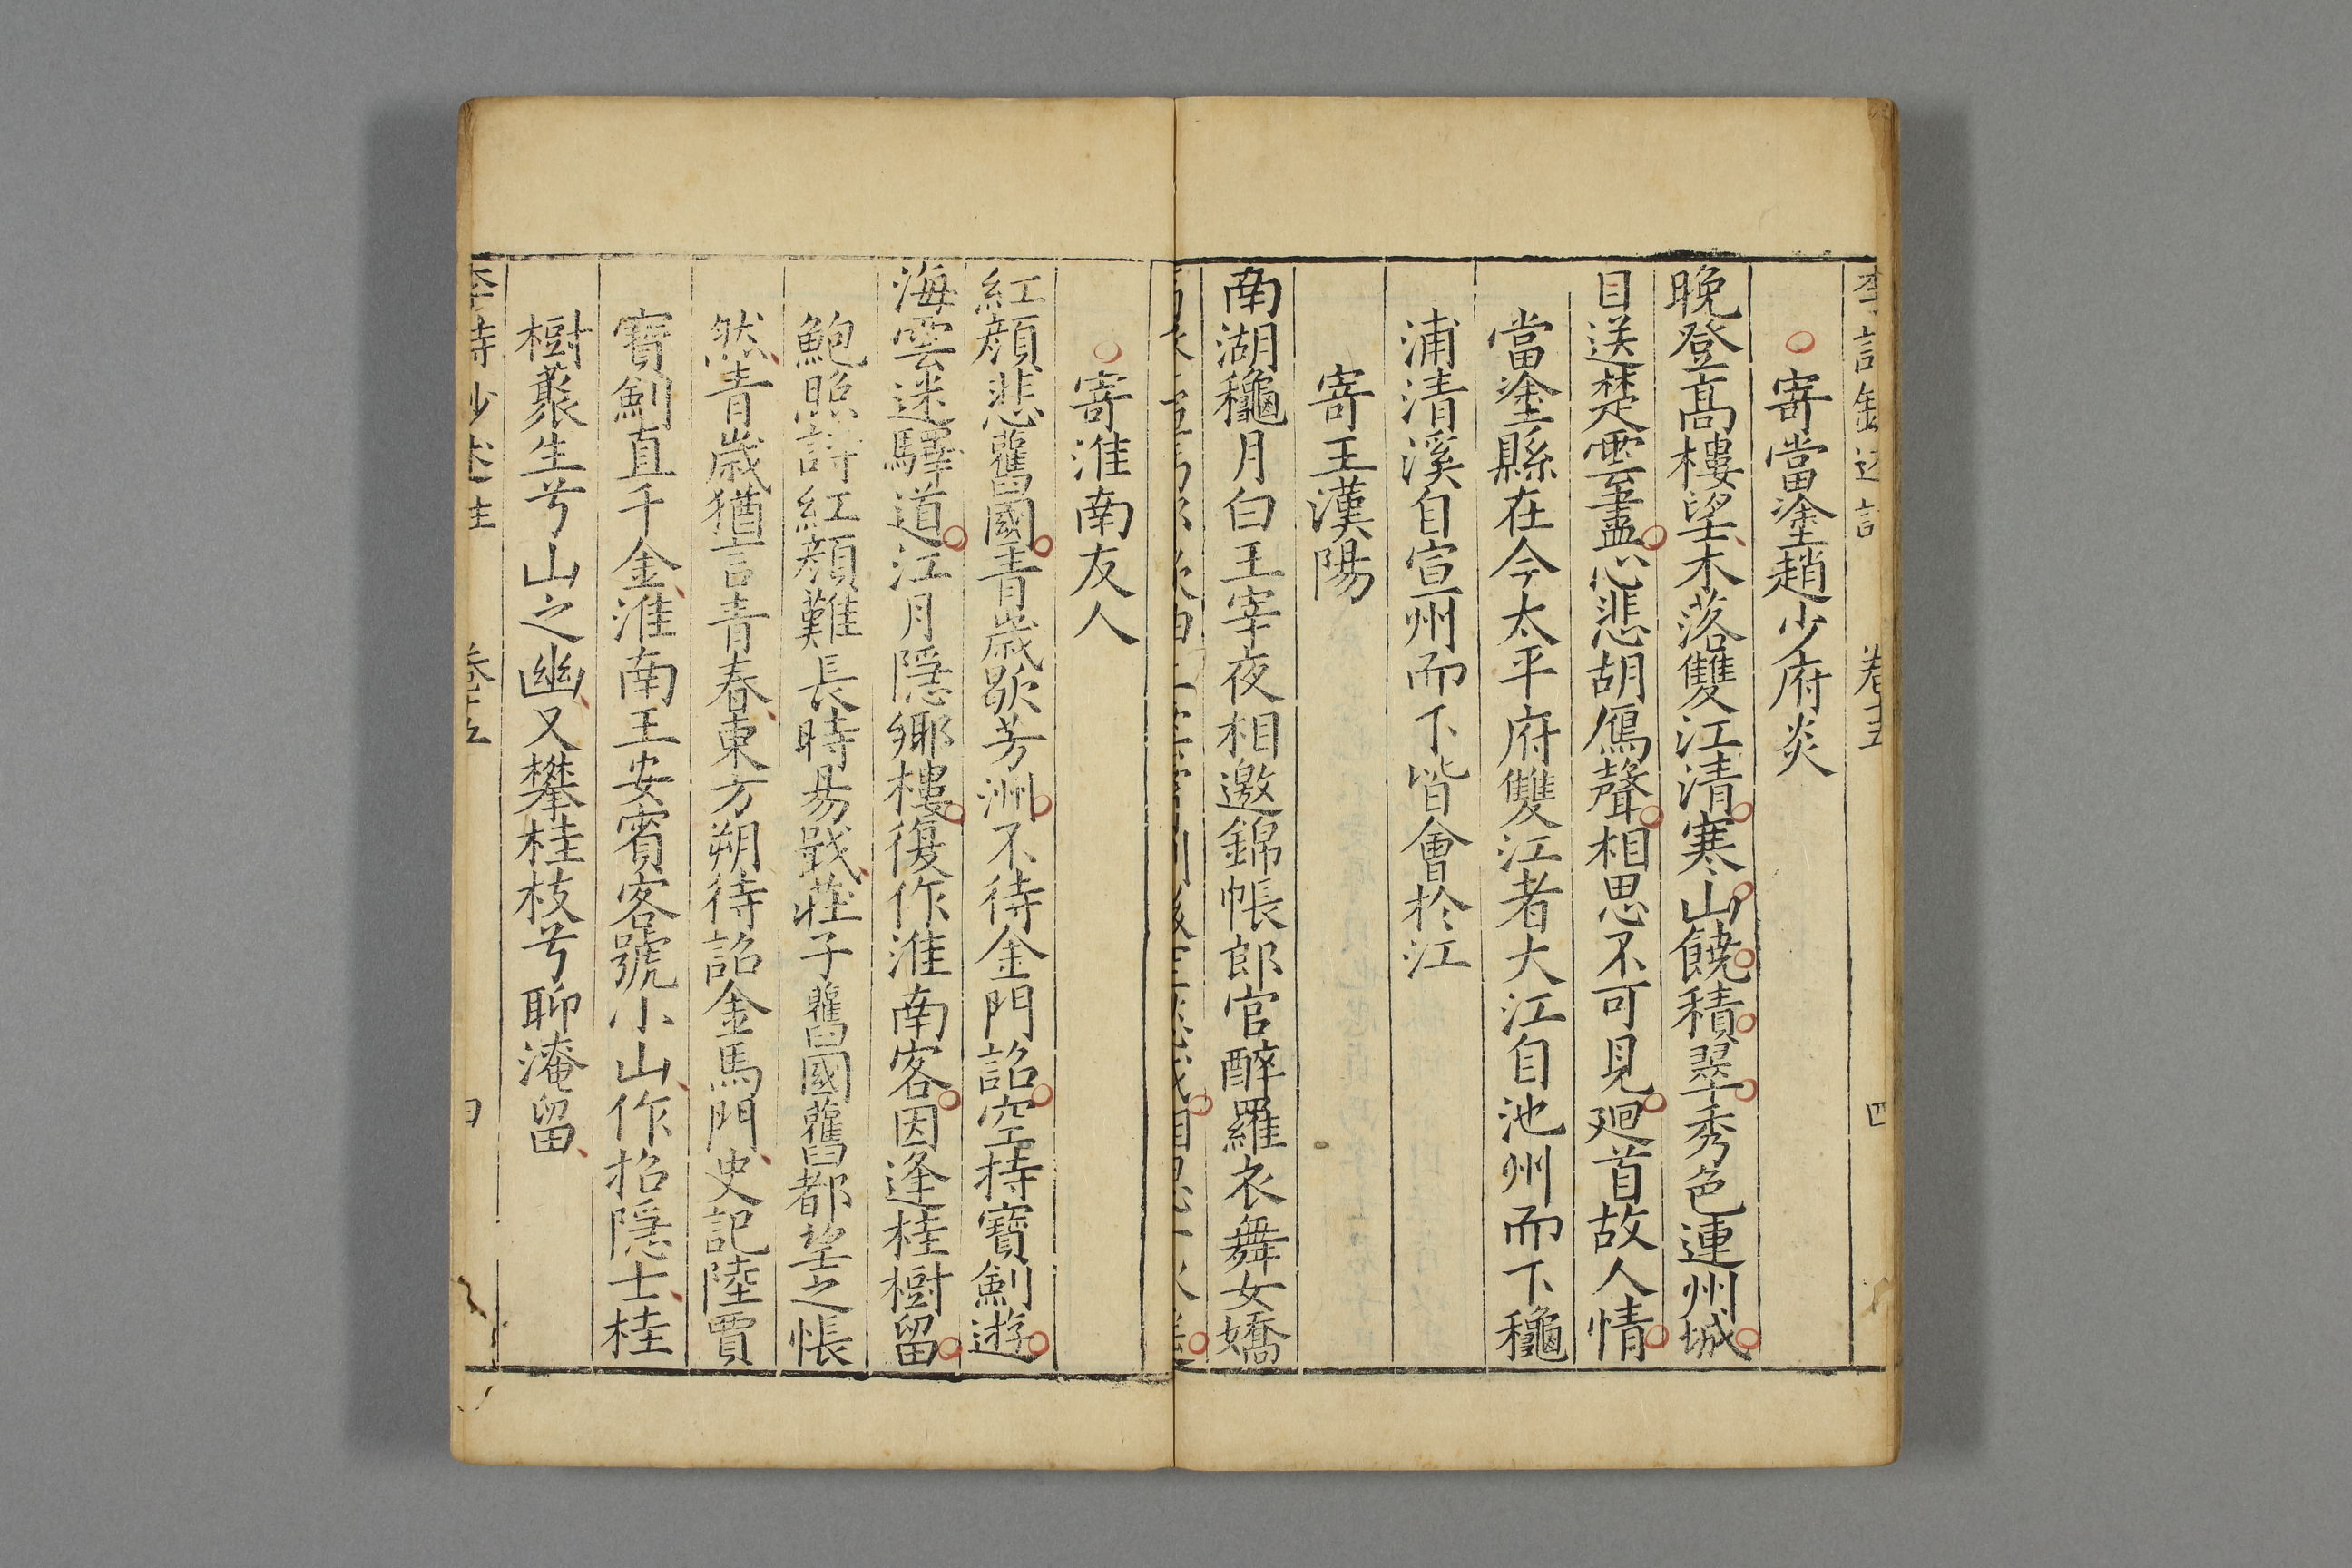 卷五
四
寄當塗趙少府炎
晚登髙樓望木落雙江清寒山饒積翠秀色連州城
目送楚雲盡心悲胡鴈聲相思不可見廻首故人情
當塗縣在今太平府雙江者大江自池州而下龝
浦清溪自宣州而下皆會於江
寄王漢陽
南湖龝月白王宰夜相邀錦帳郎官醉羅衣舞女嬌
寄淮南友人
紅顔悲舊國青歲歇芳洲不待金門詔空持寶劍遊
海雲迷驛道江月隱鄉樓復作淮南客因逢桂樹留
鮑照詩紅顔難長時昜戢莊子舊國舊都望之悵
然青歲猶言青春東方朔待詔金馬門史記陸賈
寶劍直千金淮南王安賓客號小山作招隱士桂
樹叢生兮山之幽又攀桂枝兮聊淹留